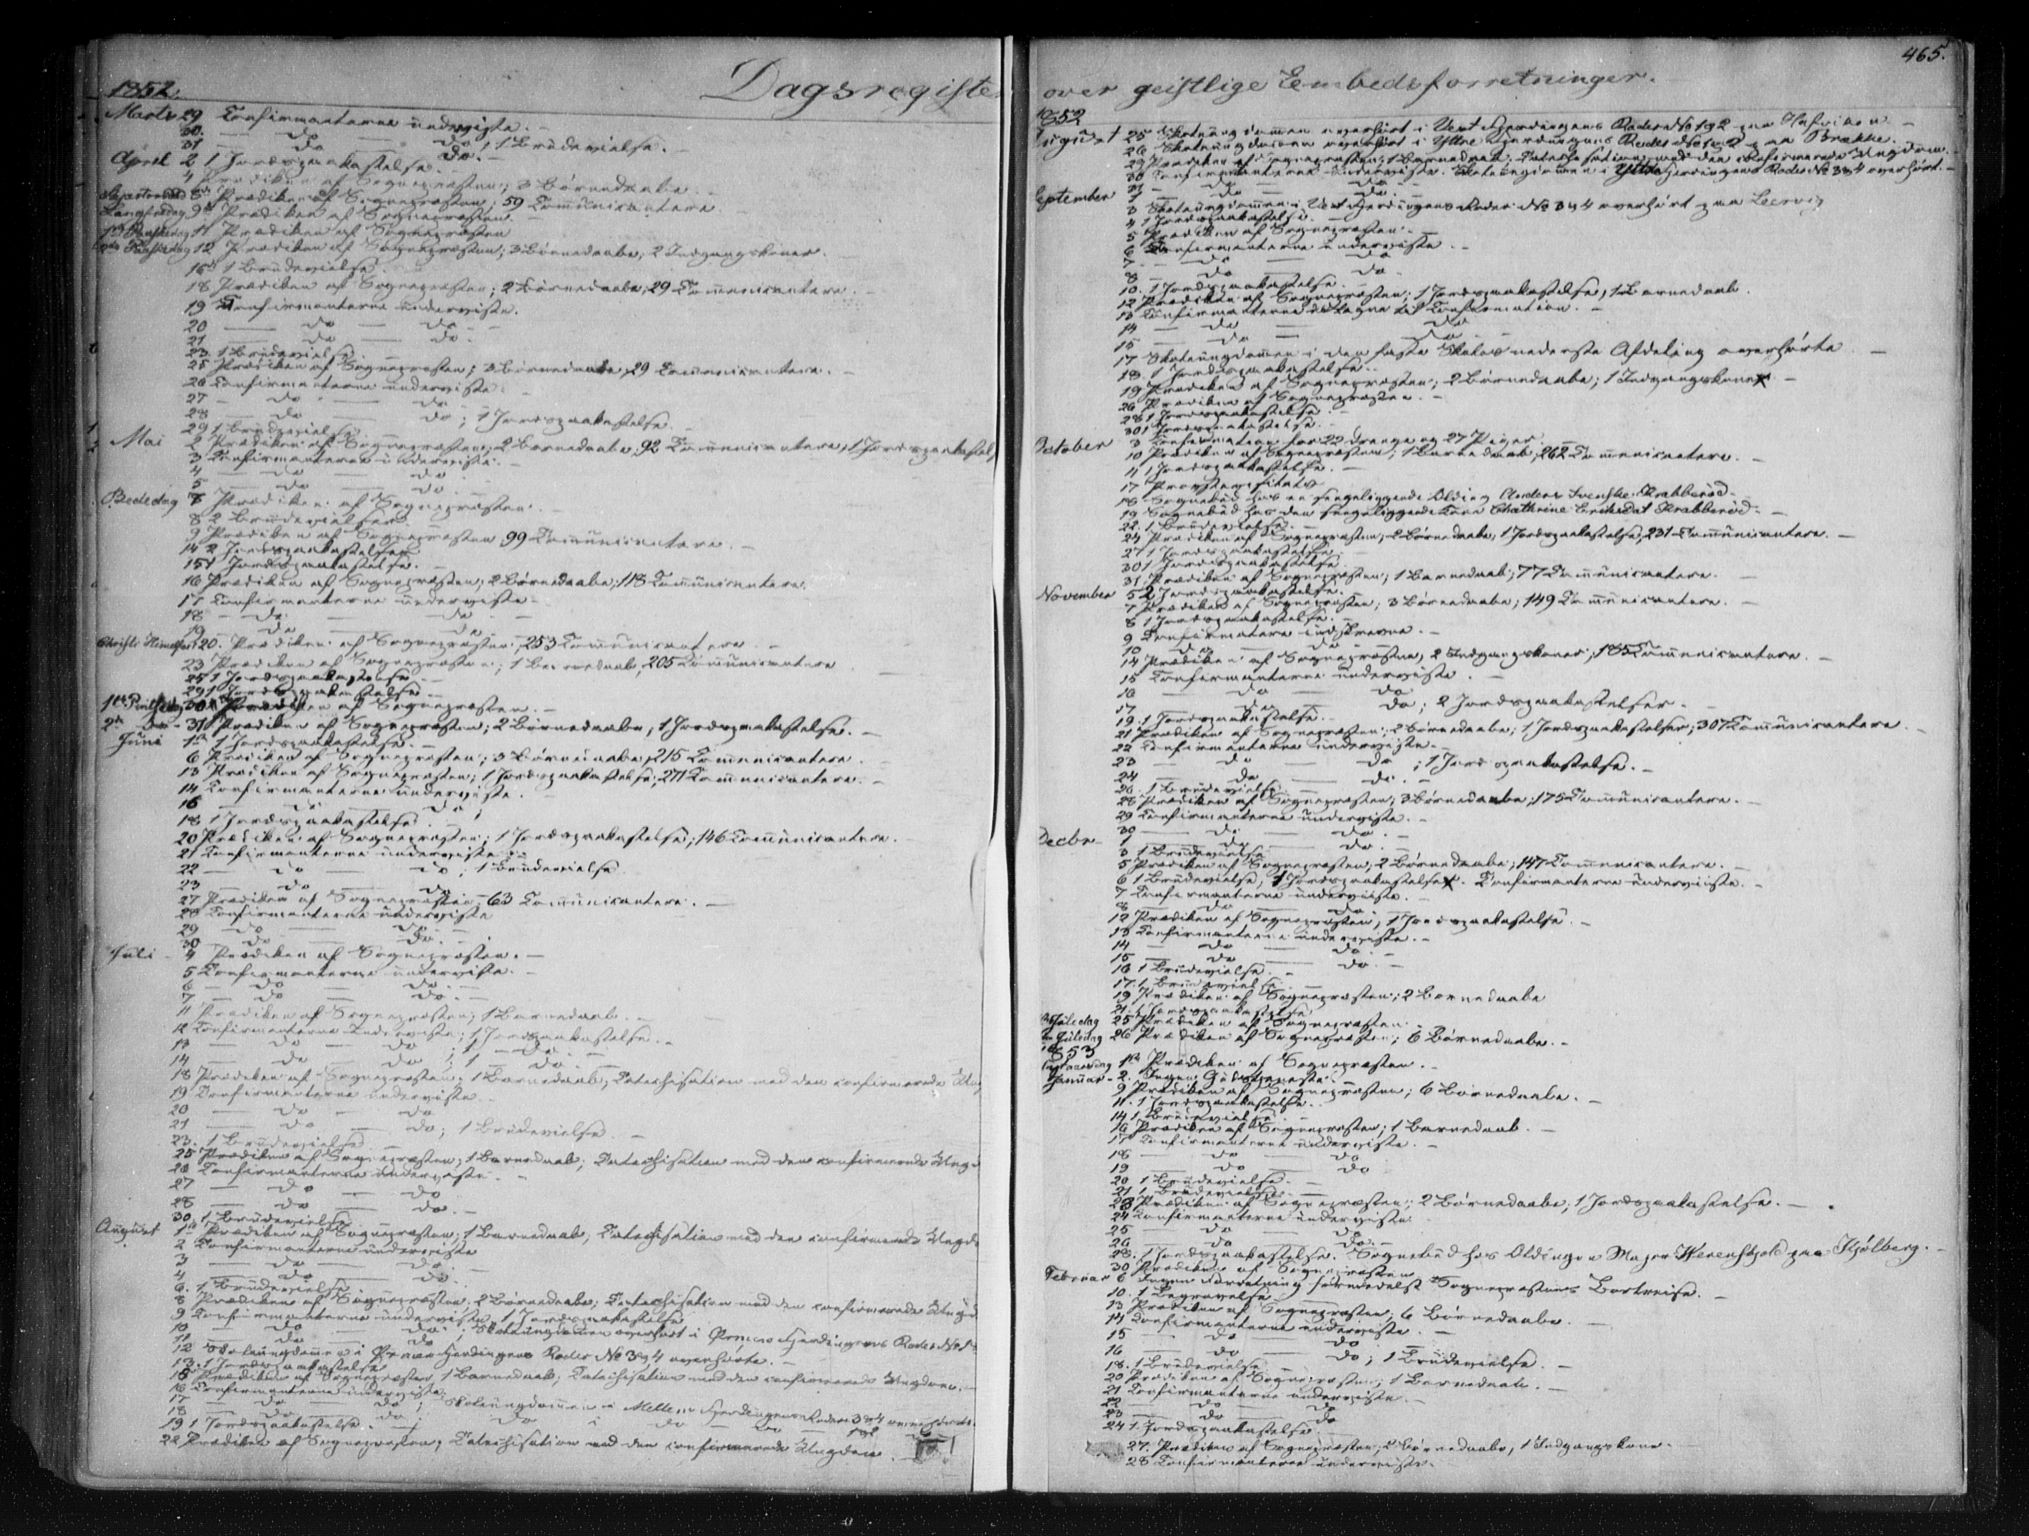 1852. Dagsregister
Marts 29 Confirmanterne underviste. —
30. — do — do
31 — do — do; 1 Brudevielse. —
April 2 1 Jordspaakastelse. —
4 Prædiken af Sognepræsten; 3 Børnedaabe. —
Skjærtorsdag 8 Prædiken af Sognepræsten; 59 Communicantere
Langfredag 9 Prædiken af Sognepræsten.
1ste Paaskedag 11 Prædiken af Sognepræsten
2den Paaskedag 12 Prædiken af Sognepræsten; 3 Børnedaabe; 2 Indgangskoner.
16 1 Brudevielse.
18 Prædiken af Sognepræsten; 2 Børnedaabe; 29 Communicantere. —
19 Confirmanterne underviste.
20 — do — do —
21 — do — do. —
23. 1 Brudevielse. —
25 Prædiken af Sognepræsten; 3 Børnedaabe, 29 Communicantere. —
26 Confirmanterne underviste.
27 — do — do
28 — do — do; 1 Jordspaakastelse. —
29 1 Brudevielse.
Mai 2 Prædiken af Sognepræsten; 2 Børnedaabe, 92 Communicantere; 1 Jordspaakastelse
3 Confirmanterne underviste. —
4 — do — do
5 — do — do. —
Bededag 7 Prædiken af Sognepræsten. —
8 2 Brudevielser.
9 Prædiken af Sognepræsten 99 Communicantere. —
14 2 Jordspaakastelser
15 1 Jordspaakastelse. —
16 Prædiken af Sognepræsten; 2 Børnedaabe; 118 Communicantere.
17 Confirmanterne underviste. —
18 — do — do
19 do — do —
Christi Himmelfart 20. Prædiken af Sognepræsten; 253 Communicantere
23 Prædiken af Sognepræsten; 1 Barnedaab, 205 Communicantere
25 1 Jordspaakastelse. —
29 1 Jordspaakastelse —
1ste Pintsedag 30 Prædiken af Sognepræsten. —
2den do — 31 Prædiken af Sognepræsten; 2 Børnedaabe; 1 Jordspaakastelse. —
Juni 1ste 1 Jordspaakastelse. —
6 Prædiken af Sognepræsten; 3 Børnedaabe; 215 Communicantere. —
13 Prædiken af Sognepræsten; 1 Jordspaakastelse; 271 Communicantere. —
14 Confirmanterne underviste. —
16 — do — do
18 1 Jordspaakastelse. —
20 Prædiken af Sognepræsten; 1 Jordspaakastelse; 146 Communicantere.
21 Confirmanterne underviste. —
22 — do — do; 1 Brudevielse.
23 — do — do
27 Prædiken af Sognepræsten — 63 Communicantere. —
28 Confirmanterne underviste
29 — do — do. —
30 — do — do. —
Juli — 4 Prædiken af Sognepræsten. —
5 Confirmanterne underviste. —
6 — do — do —
7 — do — do. —
11 Prædiken af Sognepræsten; 1 Barnedaab. —
12 Confirmanterne underviste; 1 Jordspaakastelse. —
13 — do — do; 1 — do —
14 — do — do; 1 — do. —
18 Prædiken af Sognepræsten; 1 Barnedaab; Catechisation med den confirmerede Ung
19 Confirmanterne underviste. —
20 — do — do
21 — do — do; 1 Brudevielse. —
23. 1 Brudevielse —
25 Prædiken af Sognepræsten; 1 Barnedaab; Catechisation med den confirmerede Ungd
26 Confirmanterne underviste. —
27 — do — do
28 — do — do. —
30. 1 Brudevielse
August 1ste Prædiken af Sognepræsten; 1 Barnedaab; Catechisation med den confirmerede Ungd
2 Confirmanterne underviste
3 — do — do. —
4 — do — do. —
6. 1 Brudevielse
8 Prædiken af Sognepræsten. 2 Børnedaabe; Catechisation med den confirmerede Ungd
9 Confirmanterne underviste; 1 Jordspaakastelse
10 — do — do; Skoleungdommen overhørt i Fjerdingens Roder No 1
11 — do — do
12 Skoleungdommen i Fjerdingens Roder No 3 & 4 overhørte. —
13. 1 Jordspaakastelse
15 Prædiken af Sognepræsten, 1 Barnedaab; Catechisation med den confirmerede Ungdom. —
16 Confirmanterne underviste
17 — do — do; Skoleungdommen i Mellem Fjerdingens Roder 3 & 4
18 — do — do; do i do
19 1 Jordspaakastelse. —
22 Prædiken af Sognepræsten; Catechisation med den confirmerede Ungdom.
465.
over geistlige Embedsforretninger.
1852
August 25 Skoleungdommen overhørt i Vest Fjerdingens Roder No 1 & 2 paa
26 Skoleungdommen overhørt i Yttre Fjerdingens Roder No 1 & 2 paa Brække. —
29 Prædiken af Sognepræsten; 1 Barnedaab; Catechisation med den confirmerede Ungdom.
30 Confirmanterne underviste. Skoleungdommen i Yttre Fjerdingens Roder No 3 & 4 overhørt. —
31 — do — do —
September 1 — do — do —
3 Skoleungdommen i Vest Fjerdingens Roder No 3 & 4 overhørt paa
4 1 Jordspaakastelse. —
5 Prædiken af Sognepræsten. —
6 Confirmanterne underviste. —
7 — do — do
8 — do — do. —
10. 1 Jordspaakastelse. —
12 Prædiken af Sognepræsten; 1 Jordspaakastelse, 1 Barnedaab.
13 Confirmanterne til Confirmation. —
14 — do — do
15 — do — do. —
17 Skoleungdommen i den faste Skoles nederste Afdeling overhørte —
18. 1 Jordspaakastelse.
19 Prædiken af Sognepræsten; 2 Børnedaabe; 1 Indgangskone —
26 Prædiken af Sognepræsten. —
28 1 Jordspaakastelse. —
30 1 Jordspaakastelse. —
October 3 Confirmation for 22 Drenge og 27 Piger. —
10 Prædiken af Sognepræsten; 1 Barnedaab; 262 Communicantere. —
4 1 Jordspaakastelse. —
17 Provstevisitats
18 Sognebud hos en sengeliggende Olding Anders Svenske Krabberød. —
19 Sognebud hos den sengeliggende Kone Chathrine Krabberød. —
22. 1 Brudevielse. —
24 Prædiken af Sognepræsten; 2 Børnedaabe, 1 Jordspaakastelse; 231 Communicantere. —
27 1 Jordspaakastelse. —
30 1 Jordspaakastelse
31 Prædiken af Sognepræsten; 1 Barnedaab; 77 Communicantere. —
November 5 2 Jordspaakastelse. —
7 Prædiken af Sognepræsten; 3 Børnedaabe; 149 Communicantere. —
8 1 Jordspaakastelse. —
9 Confirmantere indskrevne. —
10 do — do
14 Prædiken af Sognepræsten; 2 Indgangskoner; 185 Communicantere. —
15 Confirmanterne underviste. —
16 — do — do
17 — do — do; 2 Jordspaakastelser. —
19. 1 Jordspaakastelse. —
21 Prædiken af Sognepræsten; 2 Børnedaabe; 1 Jordspaakastelse; 307 Communicantere —
22 Confirmanterne underviste. —
23 — do — do; 1 Jordspaakastelse. —
24 — do — do. —
26. 1 Brudevielse
28 Prædiken af Sognepræsten; 3 Børnedaabe; 175 Communicantere. —
29 Confirmanterne underviste. —
30 — do — do. —
Decbr 1 — do — do. —
3 1 Brudevielse
5 Prædiken af Sognepræsten; 2 Børnedaabe; 147 Communicantere. —
6 1 Brudevielse, 1 Jordspaakastelse. Confirmanterne underviiste. —
7 Confirmanterne underviste. —
8 — do — do. —
12 Prædiken af Sognepræsten; 1 Jordspaakastelse. —
13 Confirmanterne underviste. —
14 — do — do. —
15 — do — do. —
16 1 Brudevielse. —
17. 1 Brudevielse. —
19 Prædiken af Sognepræsten; 2 Børnedaabe
21. 1 Jordspaakastelse
Juledag 25 Prædiken af Sognepræsten. —
Juledag 26 Prædiken af Sognepræsten; 6 Børnedaabe. —
1853
1ste Prædiken af Sognepræsten. —
Januar — 2. Ingen Gudstjeneste. —
9 Prædiken af Sognepræsten; 6 Børnedaabe. —
11. 1 Jordspaakastelse. —
14 1 Brudevielse. —
16 Prædiken af Sognepræsten; 1 Barnedaab. —
17 Confirmanterne underviste. —
18 — do — do
19 — do — do
20 1 Brudevielse. —
21 1 Brudevielse. —
23 Prædiken af Sognepræsten; 2 Børnedaabe, 1 Jordspaakastelse. —
24 Confirmanterne underviste.
25 — do — do
26 — do — do. —
28. 1 Jordspaakastelse. Sognebud hos Oldingen Major Werenskjold paa Kjølberg. —
30 Prædiken af Sognepræsten
Februar 6 Ingen Forretning formedelst Sognepræstens Bortreise. —
10. 1 Begravelse. —
13 Prædiken af Sognepræsten; 6 Børnedaabe. —
14 Confirmanterne underviste. —
15 — do — do
16 — do — do; 1 Brudevielse. —
18. 1 Brudevielse. —
20 Prædiken af Sognepræsten; 1 Barnedaab. —
21 Confirmanterne underviste. —
22 — do — do
23 — do — do
24 1 Jordspaakastelse. —
27. Prædiken af Sognepræsten; 2 Børnedaabe, 1 Indgangskone. —
28 Confirmanterne underviste. —